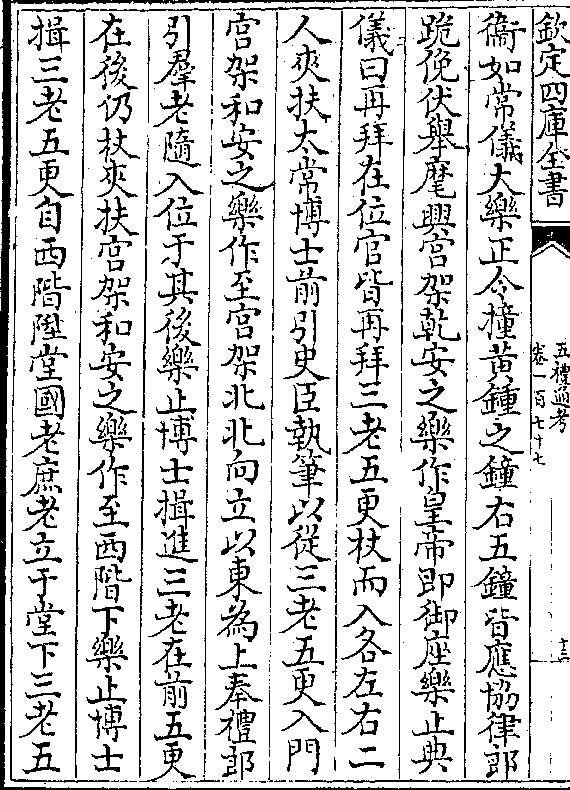 欽定四庫全書
五禮通考
卷一百七十七
十三
衞如常儀大樂正令撞黃鍾之鐘右五鐘皆應協律郎
跪俛伏舉麾興宮架乾安之樂作皇帝即御座樂止典
儀曰再拜在位官皆再拜三老五更杖而入各左右二
人夾扶太常博士前引史臣執筆以從三老五更入門
宮架和安之樂作至宮架北北向立以東為上奉禮郎
引羣老隨入位于其後樂止博士揖進三老在前五更
在後仍杖夾扶宮架和安之樂作至西階下樂止博士
揖三老五更自西階陞堂國老庶老立于堂下三老五